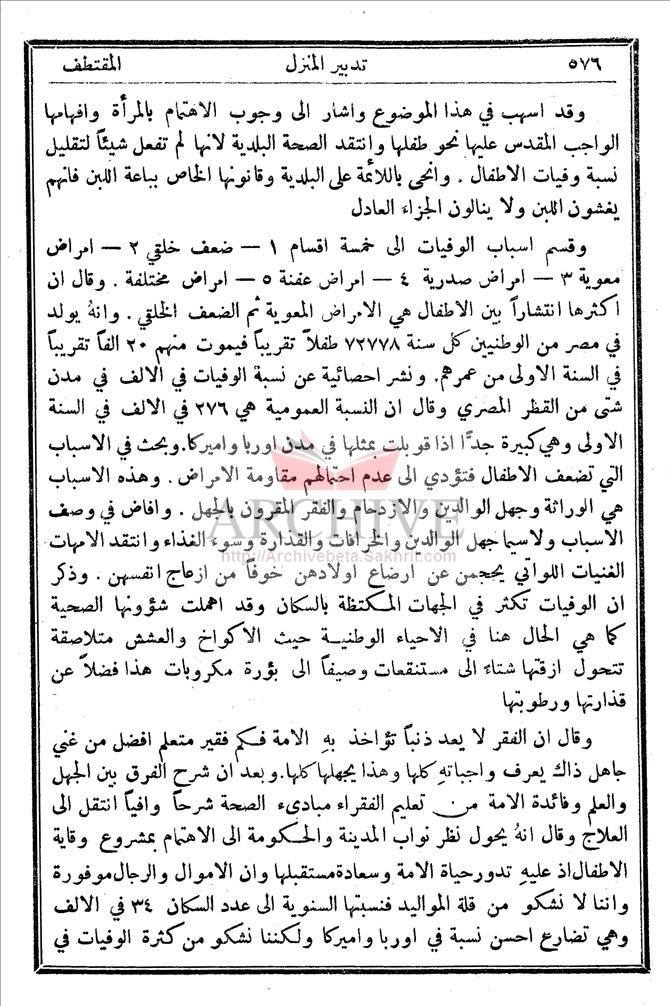 ٥٧٦ تدبير المنزل المقتطف
وقد اسهب في هذا الموضوع واشار الى وجوب الاهتمام بالمرأة وافهامها
الواجب المقدس عليها نحو طفلها وانتقد الصحة البلدية لانها لم تفعل شيئاً لتقليل
نسبة وفيات الاطفال . وانحى باللائمة على البلدية وقانونها الخاص بباعة اللبن فانهم
يغشون اللبن ولا ينالون الجزاء العادل
وقسم اسباب الوفيات الى خمسة اقسام ١ — ضعف خلقي ٢ — امراض
معوية ٣ — امراض صدرية ٤ — امراض عفنة ٥ — امراض مختلفة . وقال ان
اكثرها انتشاراً بين الاطفال هي الامراض المعوية ثم الضعف الخلقي . وانهُ يولد
في مصر من الوطنيين كل سنة ٧٢٧٧٨ طفلاً تقريباً فيموت منهم ٢٠ الفاً تقريباً
في السنة الاولى من عمرهم. ونشر احصائية عن نسبة الوفيات في الالف في مدن
شتى من القطر المصري وقال ان النسبة العمومية هي ٢٧٦ في الالف في السنة
الاولى وهي كبيرة جدًّا اذا قوبلت بمثلها في مدن اوربا واميركا. وبحث في الاسباب
التي تضعف الاطفال فتؤدي الى عدم احتمالهم مقاومة الامراض . وهذه الاسباب
هي الوراثة وجهل الوالدين والازدحام والفقر المقرون بالجهل . وافاض في وصف
ARCHIVE
الاسباب ولاسيما جهل الوالدين والخرافات والقذارة وسوء الغذاء وانتقد الامهات
http://Archivebeta.Sakhrit.com
الغنيات اللواتي يحجمن عن ارضاع اولادهن خوفاً من ازعاج انفسهن . وذكر
ان الوفيات تكثر في الجهات المكتظة بالسكان وقد اهملت شؤونها الصحية
كما هي الحال هنا في الاحياء الوطنية حيث الاكواخ والعشش متلاصقة
تتحول ازقتها شتاءً الى مستنقعات وصيفاً الى بؤرة مكروبات هذا فضلاً عن
قذارتها ورطوبتها
وقال ان الفقر لا يعد ذنباً تؤاخذ بهِ الامة فكم فقير متعلم افضل من غني
جاهل ذاك يعرف واجباتهِ كلها وهذا يجهلها كلها. وبعد ان شرح الفرق بين الجهل
والعلم وفائدة الامة من تعليم الفقراء مبادىء الصحة شرحاً وافياً انتقل الى
العلاج وقال انهُ يحول نظر نواب المدينة والحكومة الى الاهتمام بمشروع وقاية
الاطفال اذ عليهِ تدور حياة الامة وسعادة مستقبلها وان الاموال والرجال موفورة
واننا لا نشكو من قلة المواليد فنسبتها السنوية الى عدد السكان ٣٤ في الالف
وهي تضارع احسن نسبة في اوربا واميركا ولكننا نشكو من كثرة الوفيات في